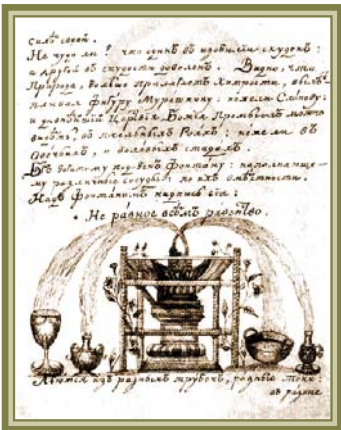 силѣ своей.
Не чудо ли? что одинъ въ изобиліи скуденъ:
а другой въ скудости доволенъ. Видно, что
Природа, больше прилагаетъ Хитрости, вылѣ-
пливая Фигуру Мурашкину: нежели Слонову:
и Царствія Божія Промыслъ можно
видѣть, въ пчельныхъ Рояхъ: нежели въ
Овечьихъ, и воловьихъ стадахъ.
Бгъ богатому подобенъ Фонтану: наполняюще-
му различные сосуды по ихъ вмѣстности.
Надъ Фонтаномъ надпись сія:
Не равное всѣмъ равенство.
Льются изъ разныхъ трубокъ, разные токи:
въ разные